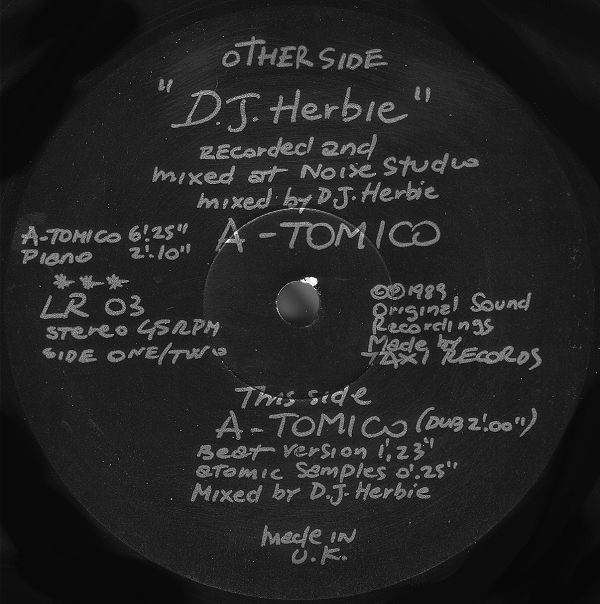 OTHER SIDE
"D.J. Herbie"
RECorded and
mixed at Noise Studio
mixed by D.J. Herbie
A-TOMICO
A-TOMICO 6'.25"
Piano 2'.10"
***
LR 03
STEREO 45RPM
SIDE ONE/TWO
©℗1989
Original Sound
Recordings
Made by
TAXI RECORDS
This side
A-TOMICO (DUB 2'.00")
Beat Version 1',23"
atomic Samples 0'.25"
Mixed by D.J. Herbie
made in
U.K.